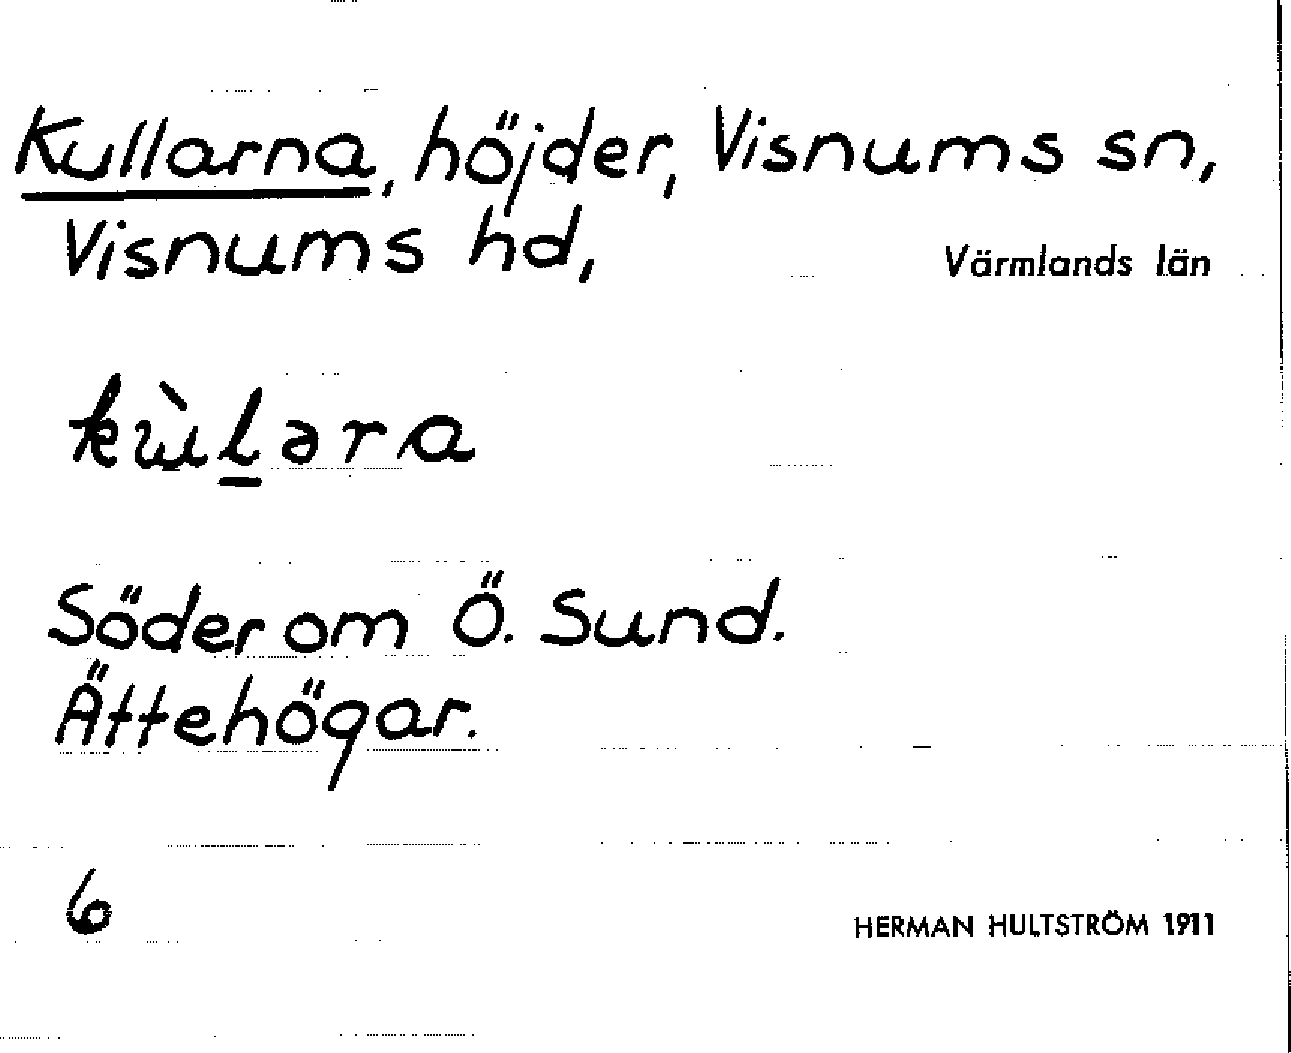 Kullarna, höjder, Visnums sn,
Visnums hd, Värmlands län
kùl̲əra
Söder om Ö. Sund.
Ättehögar.
6
HERMAN HULTSTRÖM 1911